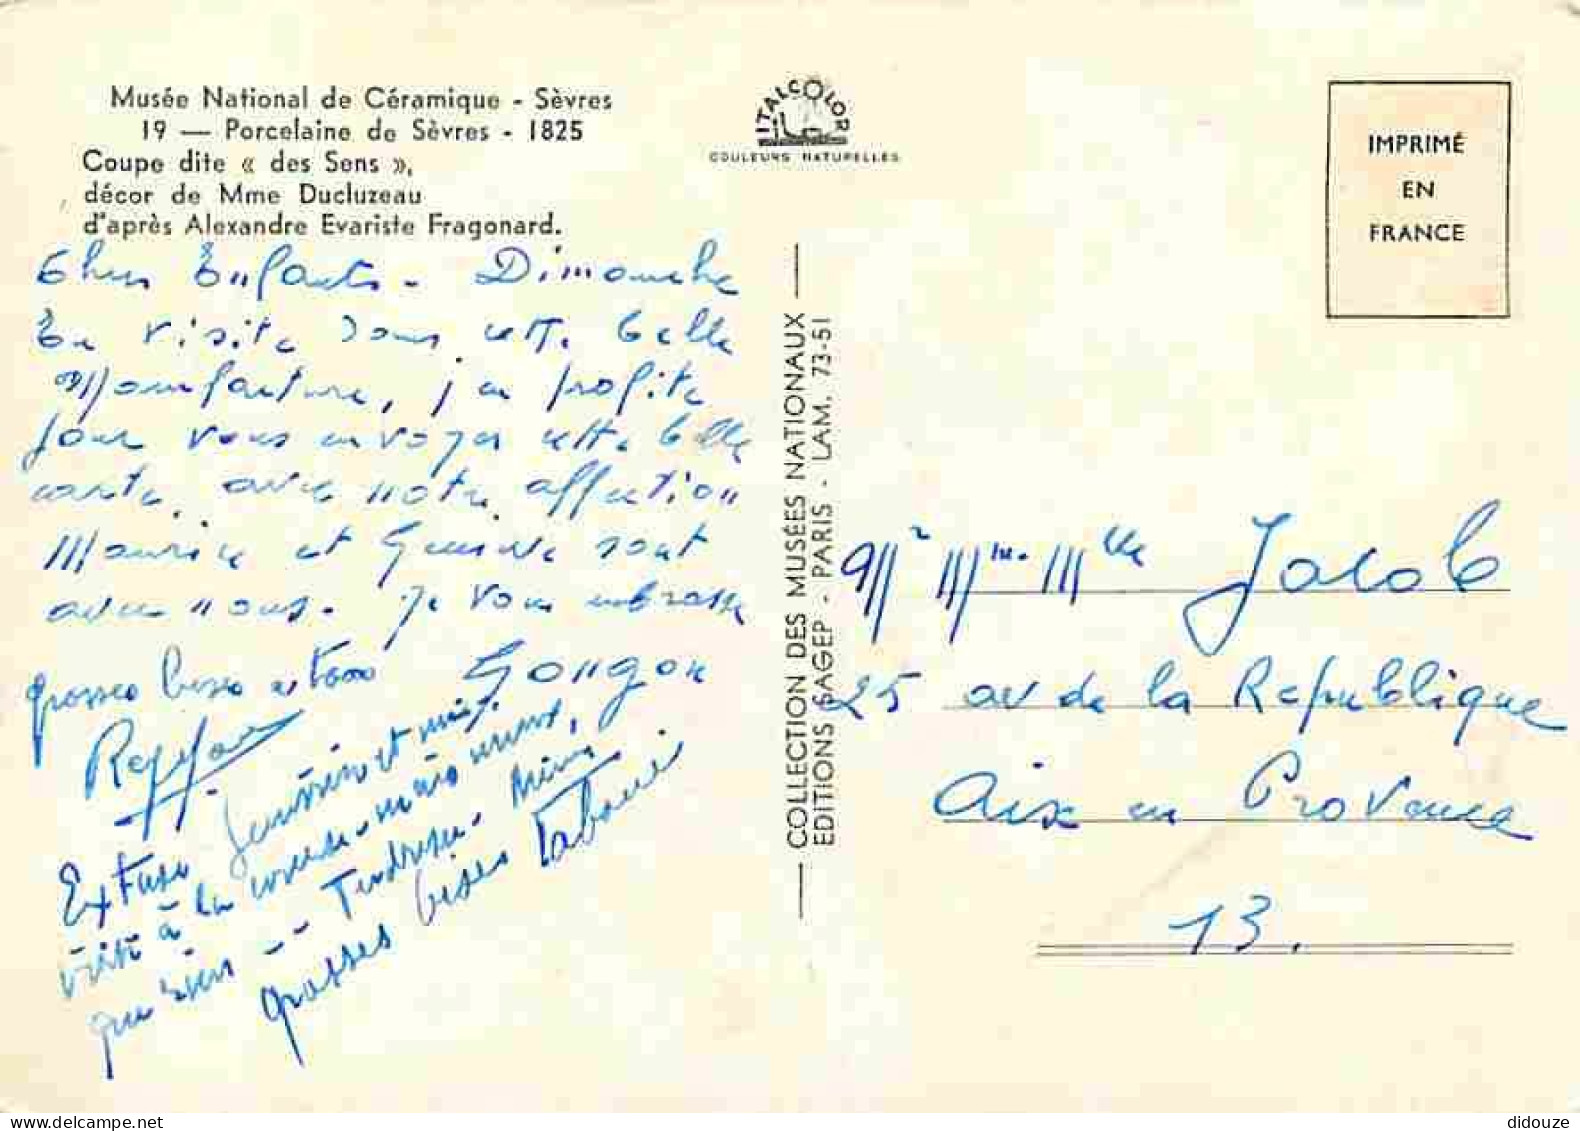 Musée National de Céramique - Sèvres
19 — Porcelaine de Sèvres - 1825
Coupe dite « des Sens »,
décor de Mme Ducluzeau
d'après Alexandre Evariste Fragonard.
ITALCOLOR
COULEURS NATURELLES
IMPRIMÉ
EN
FRANCE
Chers Enfants - Dimanche
En visite dans cette belle
Manufacture, j'en profite
pour vous envoyer cette belle
carte, avec notre affection
Maurice et sont
avec nous. Je vous embrasse
grosses bises a tous
et
visite à la mais
que rien --
grosses bises
COLLECTION DES MUSÉES NATIONAUX
EDITIONS SAGEP - PARIS - LAM. 73-51
Mr Mme Mlle Jacob
25 av de la Republique
Aix en Provence
13.
didouze